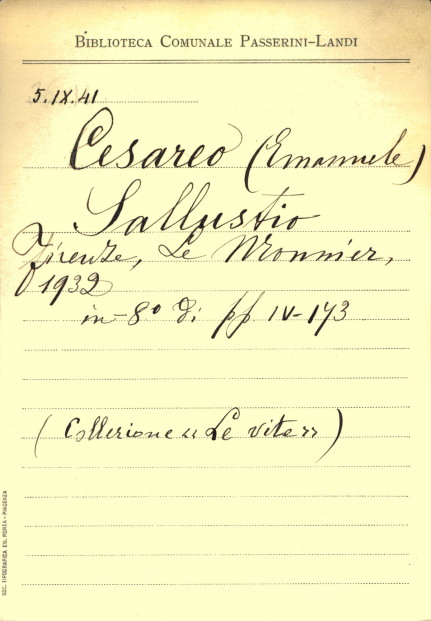 BIBLIOTECA COMUNALE PASSERINI-LANDI
5.IX.41
Cesareo (Emanuele)
Sallustio
Firenze, Le Monnier,
1932
in-8° di pp. IV-173
(Collezione «Le vite»)
SOC. TIPOGRAFICA ED. PORTA - PIACENZA